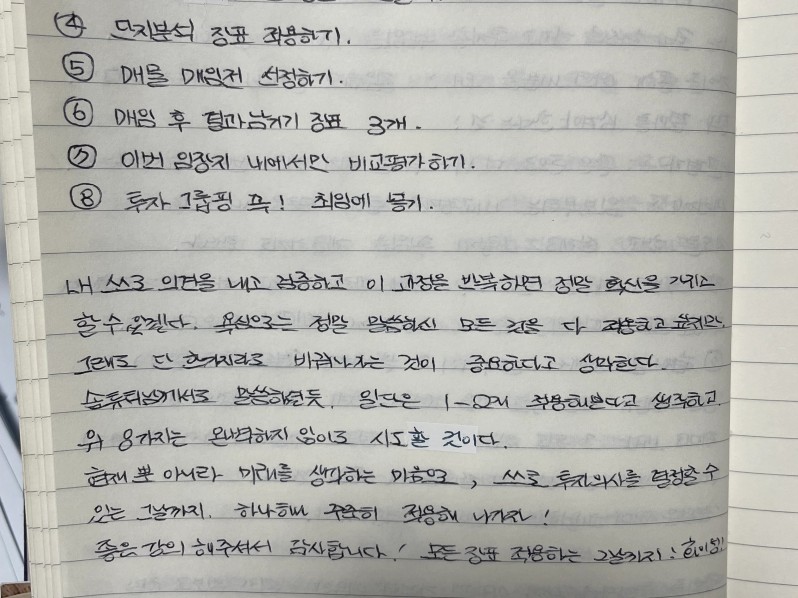 ④ 단지분석 장표 적용하기.
⑤ 매물 매임전 선정하기.
⑥ 매임 후 결과남기기 장표 3개.
⑦ 이번 임장지 내에서만 비교평가하기.
⑧ 투자 그룹핑 꼭! 최임에 넣기.
내 스스로 의견을 내고 검증하고 이 과정을 반복하면 정말 확신을 가지고
할 수 있겠다. 욕심으로는 정말 말씀하신 모든 것을 다 적용하고 싶지만,
그래도 단 한가지라도 바꿔나가는 것이 중요하다고 생각한다.
튜터님께서도 말씀하셨듯, 일단은 1-2개 적용해본다고 생각하고,
위 8가지는 완벽하지 않아도 시도할 것이다.
현재 뿐 아니라 미래를 생각하는 마음으로, 스스로 투자의사를 결정할 수
있는 그날까지. 하나하나 꾸준히 적용해 나가자!
좋은 강의 해주셔서 감사합니다! 모든 장표 적용하는 그날까지! 화이팅!